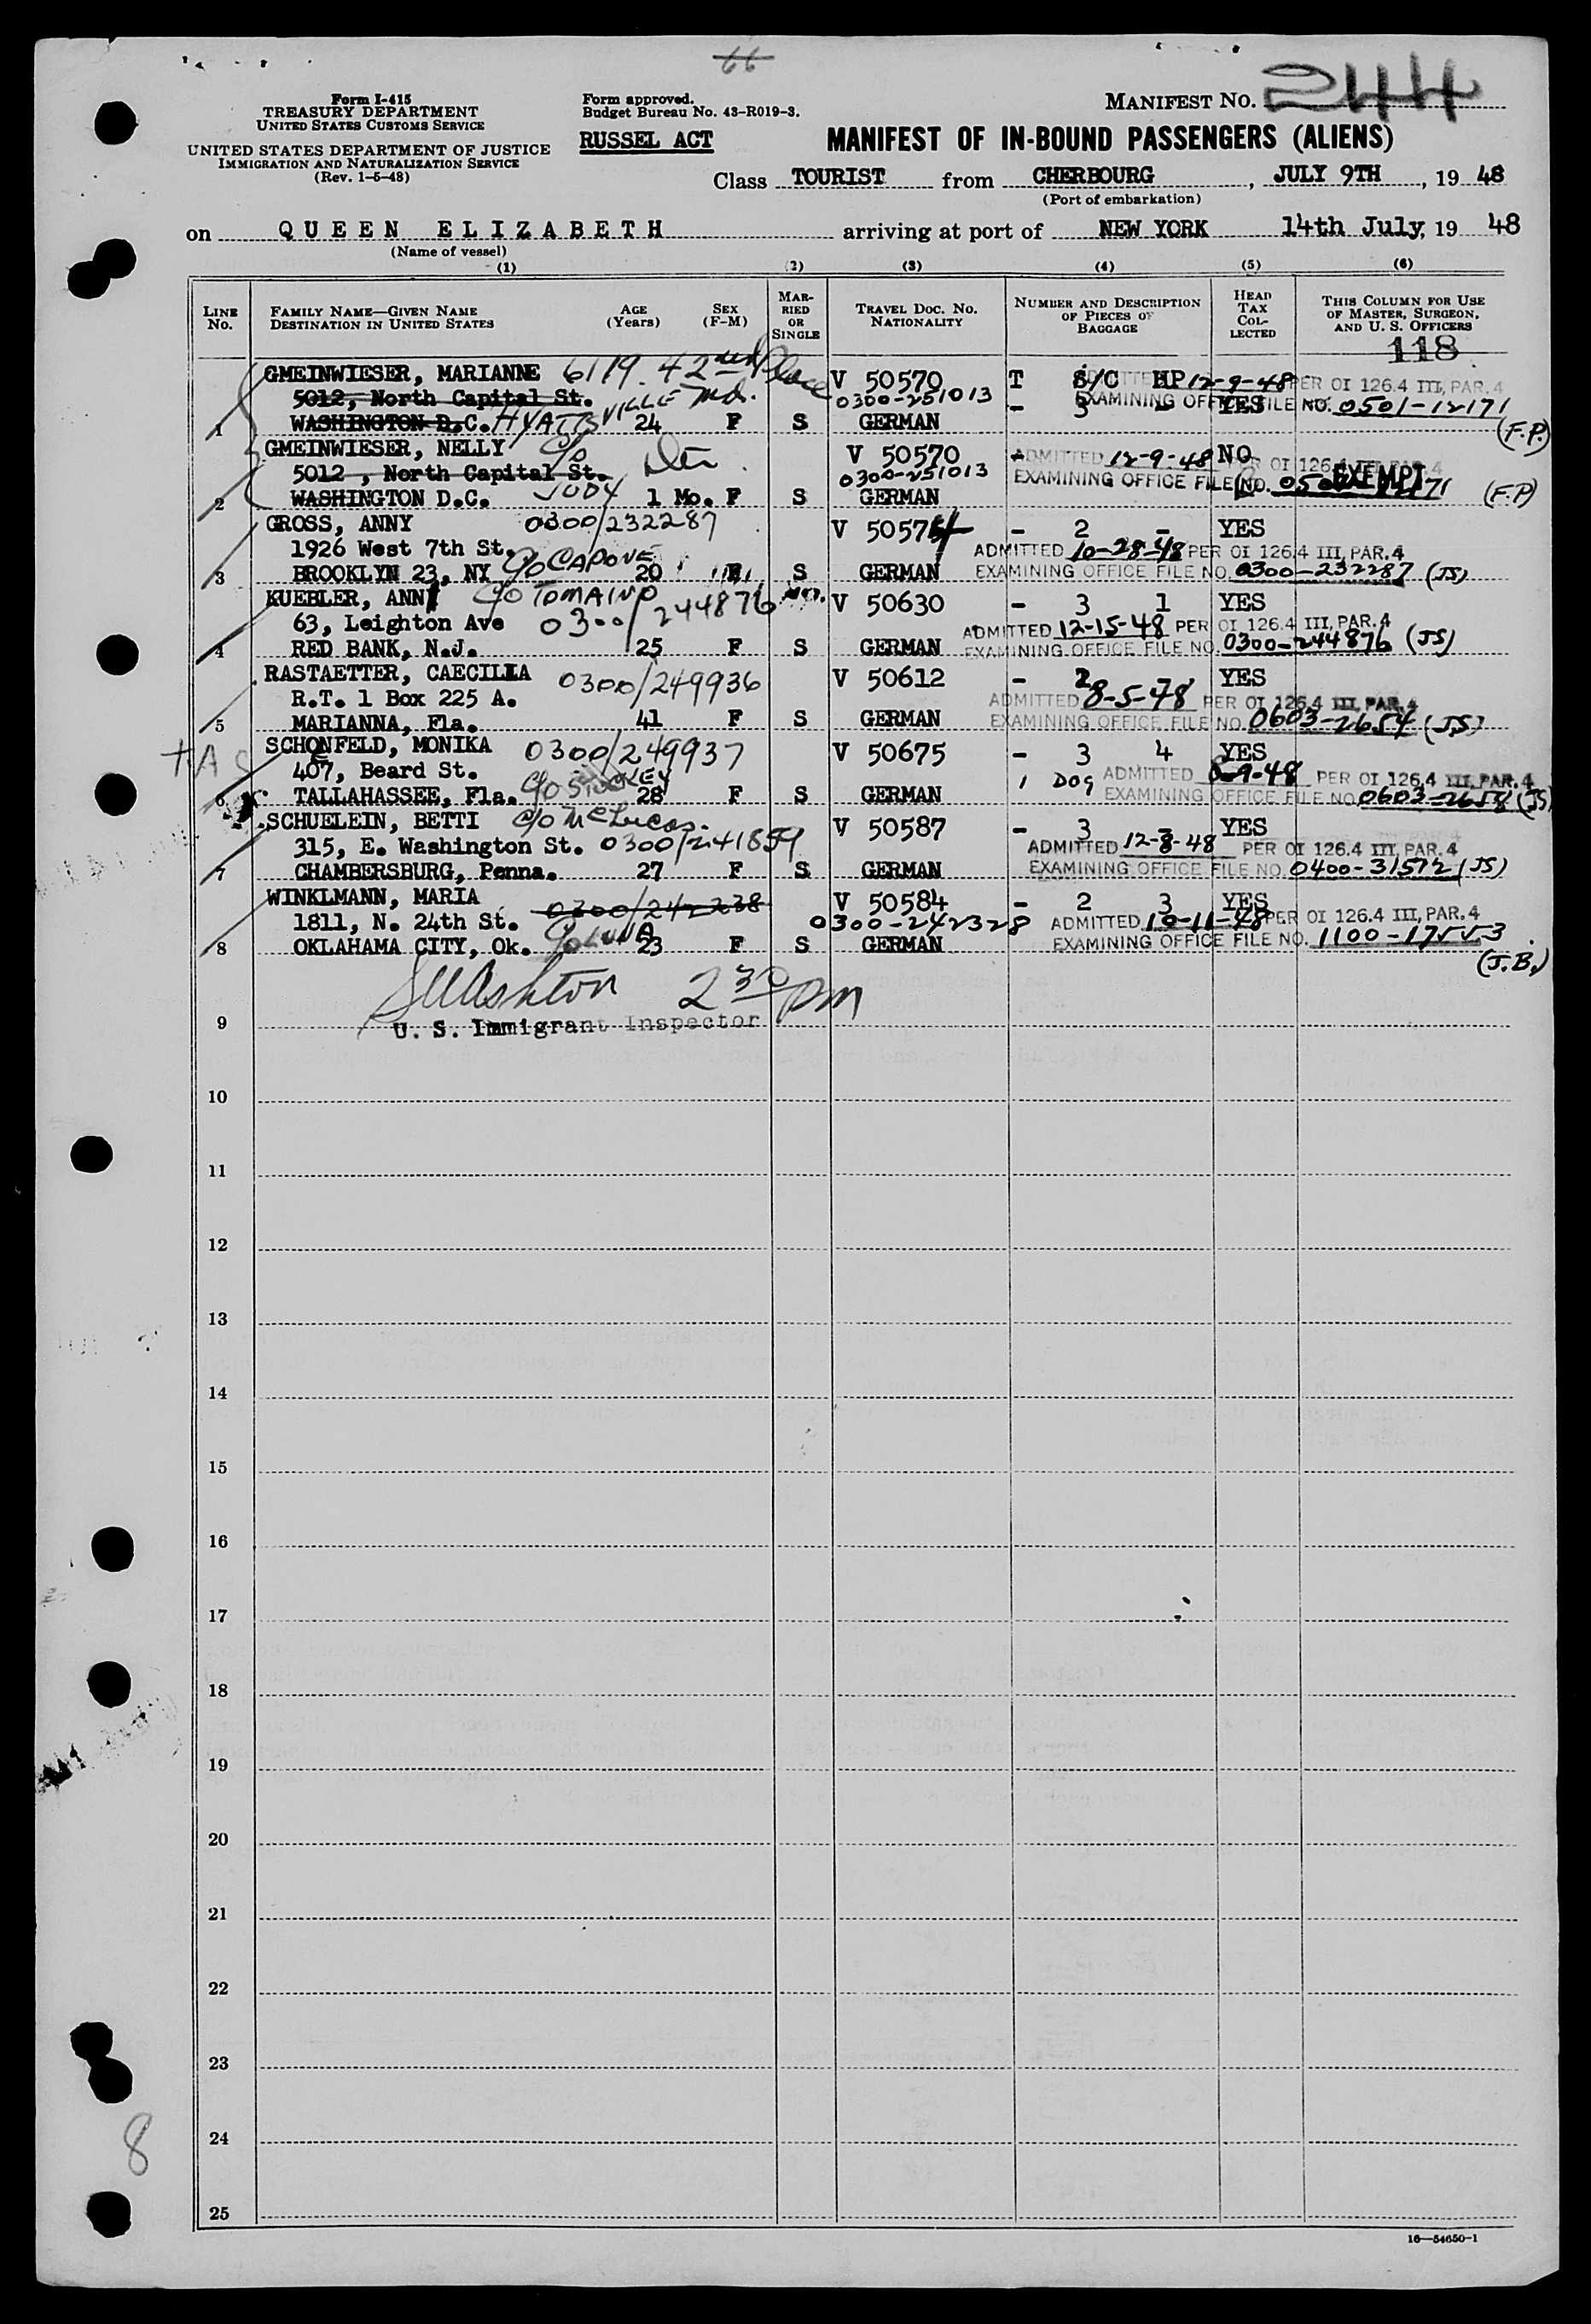 66
Form I-415
TREASURY DEPARTMENT
UNITED STATES CUSTOMS SERVICE
UNITED STATES DEPARTMENT OF JUSTICE
IMMIGRATION AND NATURALIZATION SERVICE
(Rev. 1-6-48)
Form approved.
Budget Bureau No. 43-R019-3.
RUSSEL ACT
MANIFEST NO. 244
MANIFEST OF IN-BOUND PASSENGERS (ALIENS)
Class TOURIST from CHERBOURG, JULY 9TH, 19 48
(Port of embarkation)
on QUEEN ELIZABETH arriving at port of NEW YORK 14th July, 19 48
(Name of vessel)
(1) (2) (3) (4) (5) (6)
LINE No.
FAMILY NAME—GIVEN NAME
DESTINATION IN UNITED STATES
AGE (Years)
SEX (F-M)
MARRIED OR SINGLE
TRAVEL DOC. NO. NATIONALITY
NUMBER AND DESCRIPTION OF PIECES OF BAGGAGE
HEAD TAX COLLECTED
THIS COLUMN FOR USE OF MASTER, SURGEON, AND U. S. OFFICERS
118
GMEINWIESER, MARIANNE 6119. 42nd Place V 50570 T S/C HP ADMITTED 12-9-48 PER OI 126.4 III, PAR. 4
5012, North Capital St. 0300-251013 - 3 - YES EXAMINING OFFICE FILE NO. 0501-12171
1 WASHINGTON D.C. HYATTSVILLE Md. 24 F S GERMAN (F.P.)
GMEINWIESER, NELLY c/o V 50570 - ADMITTED 12-9-48 NO PER OI 126.4
5012, North Capital St. 0300-251013 EXAMINING OFFICE FILE NO. EXEMPT
2 WASHINGTON D.C. JUDY 1 Mo. F S GERMAN (F.P)
GROSS, ANNY 0300/232287 V 50574 - 2 - YES
1926 West 7th St. c/o CAPONE ADMITTED 10-28-48 PER OI 126.4 III, PAR. 4
3 BROOKLYN 23, NY 20 F S GERMAN EXAMINING OFFICE FILE NO. 0300-232287 (JS)
KUEBLER, ANNY c/o TOMAINO V 50630 - 3 1 YES
63, Leighton Ave 0300/244876 ADMITTED 12-15-48 PER OI 126.4 III, PAR. 4
4 RED BANK, N.J. 25 F S GERMAN EXAMINING OFFICE FILE NO. 0300-244876 (JS)
RASTAETTER, CAECILIA 0300/249936 V 50612 - 2 - YES
R.T. 1 Box 225 A. ADMITTED 8-5-48 PER OI 126.4 III, PAR. 4
5 MARIANNA, Fla. 41 F S GERMAN EXAMINING OFFICE FILE NO. 0603-2654 (JS)
SCHONFELD, MONIKA 0300/249937 V 50675 - 3 4 YES
407, Beard St. 1 DOG ADMITTED 8-9-48 PER OI 126.4 III, PAR. 4
6 TALLAHASSEE, Fla. 28 F S GERMAN EXAMINING OFFICE FILE NO. 0603-2658 (JS)
SCHUELEIN, BETTI c/o McLucas. V 50587 - 3 - YES
315, E. Washington St. 0300/241859 ADMITTED 12-8-48 PER OI 126.4 III, PAR. 4
7 CHAMBERSBURG, Penna. 27 F S GERMAN EXAMINING OFFICE FILE NO. 0400-31572 (JS)
WINKLMANN, MARIA 0300/242238 V 50584 - 2 3 YES
1811, N. 24th St. c/o LUNA 0300-242328 ADMITTED 10-11-48 PER OI 126.4 III, PAR. 4
8 OKLAHOMA CITY, Ok. 23 F S GERMAN EXAMINING OFFICE FILE NO. 1100-17553
(J.B.)
SMAshton 2 30 pm
9 U. S. Immigrant Inspector
10
11
12
13
14
15
16
17
18
19
20
21
22
23
24
8
25
16—54650-1